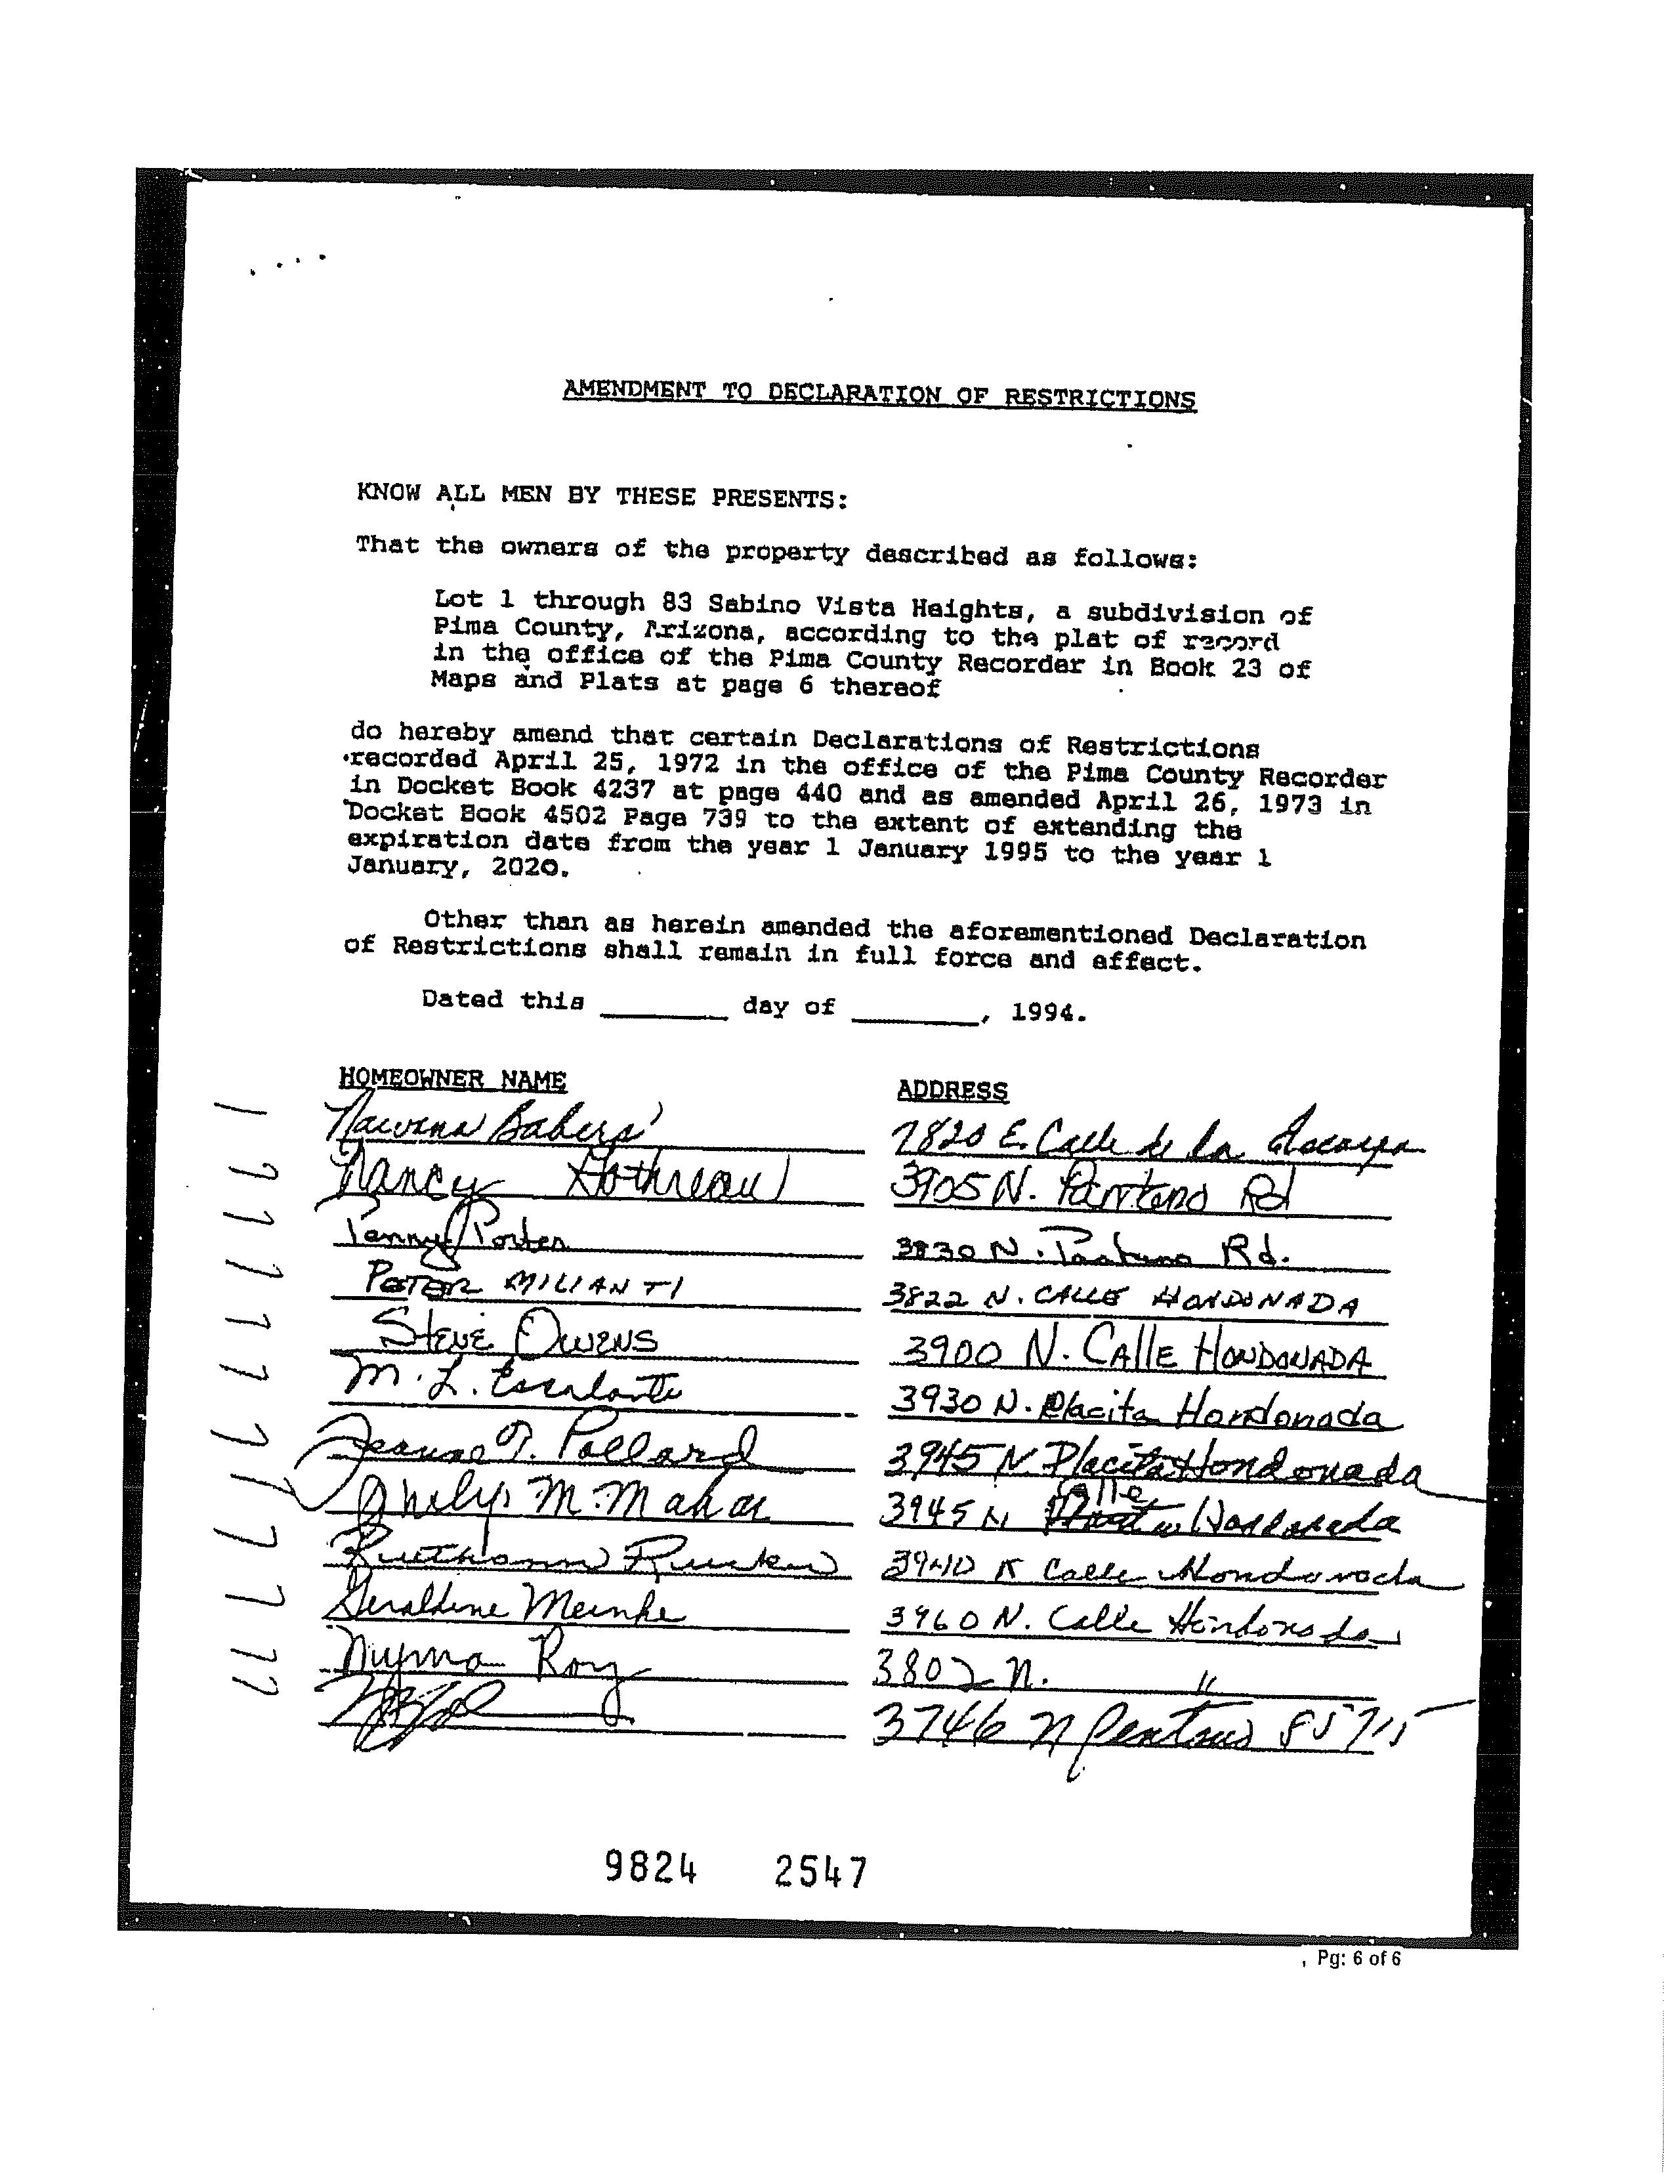 AMENDMENT TO DECLARATION OF RESTRICTIONS
KNOW ALL MEN BY THESE PRESENTS:
That the owners of the property described as follows:
Lot 1 through 83 Sabino Vista Heights, a subdivision of
Pima County, Arizona, according to the plat of record
in the office of the Pima County Recorder in Book 23 of
Maps and Plats at page 6 thereof
do hereby amend that certain Declarations of Restrictions
recorded April 25, 1972 in the office of the Pima County Recorder
in Docket Book 4237 at page 440 and as amended April 26, 1973 in
Docket Book 4502 Page 739 to the extent of extending the
expiration date from the year 1 January 1995 to the year 1
January, 2020.
Other than as herein amended the aforementioned Declaration
of Restrictions shall remain in full force and effect.
Dated this ________ day of ________, 1994.
HOMEOWNER NAME ADDRESS
7820 E. Calle de la
Nancy 3905 N. Pantano Rd
Penny Porter 3830 N. Pantano Rd.
PETER MILIANTI 3822 N. CALLE HONDONADA
STEVE OWENS 3900 N. CALLE HONDONADA
M. L. Escalante 3930 N. Placita Hondonada
Jeanne T. Pollard 3945 N. Placita Hondonada
M. Mahar 3945 N Calle Hondonada
Ruthann Rucker 3940 N Calle Hondonada
Geraldine Meinke 3960 N. Calle Hondonada
Roy 3802 N. "
3746 N Pantano 85715
9824 2547
Pg: 6 of 6